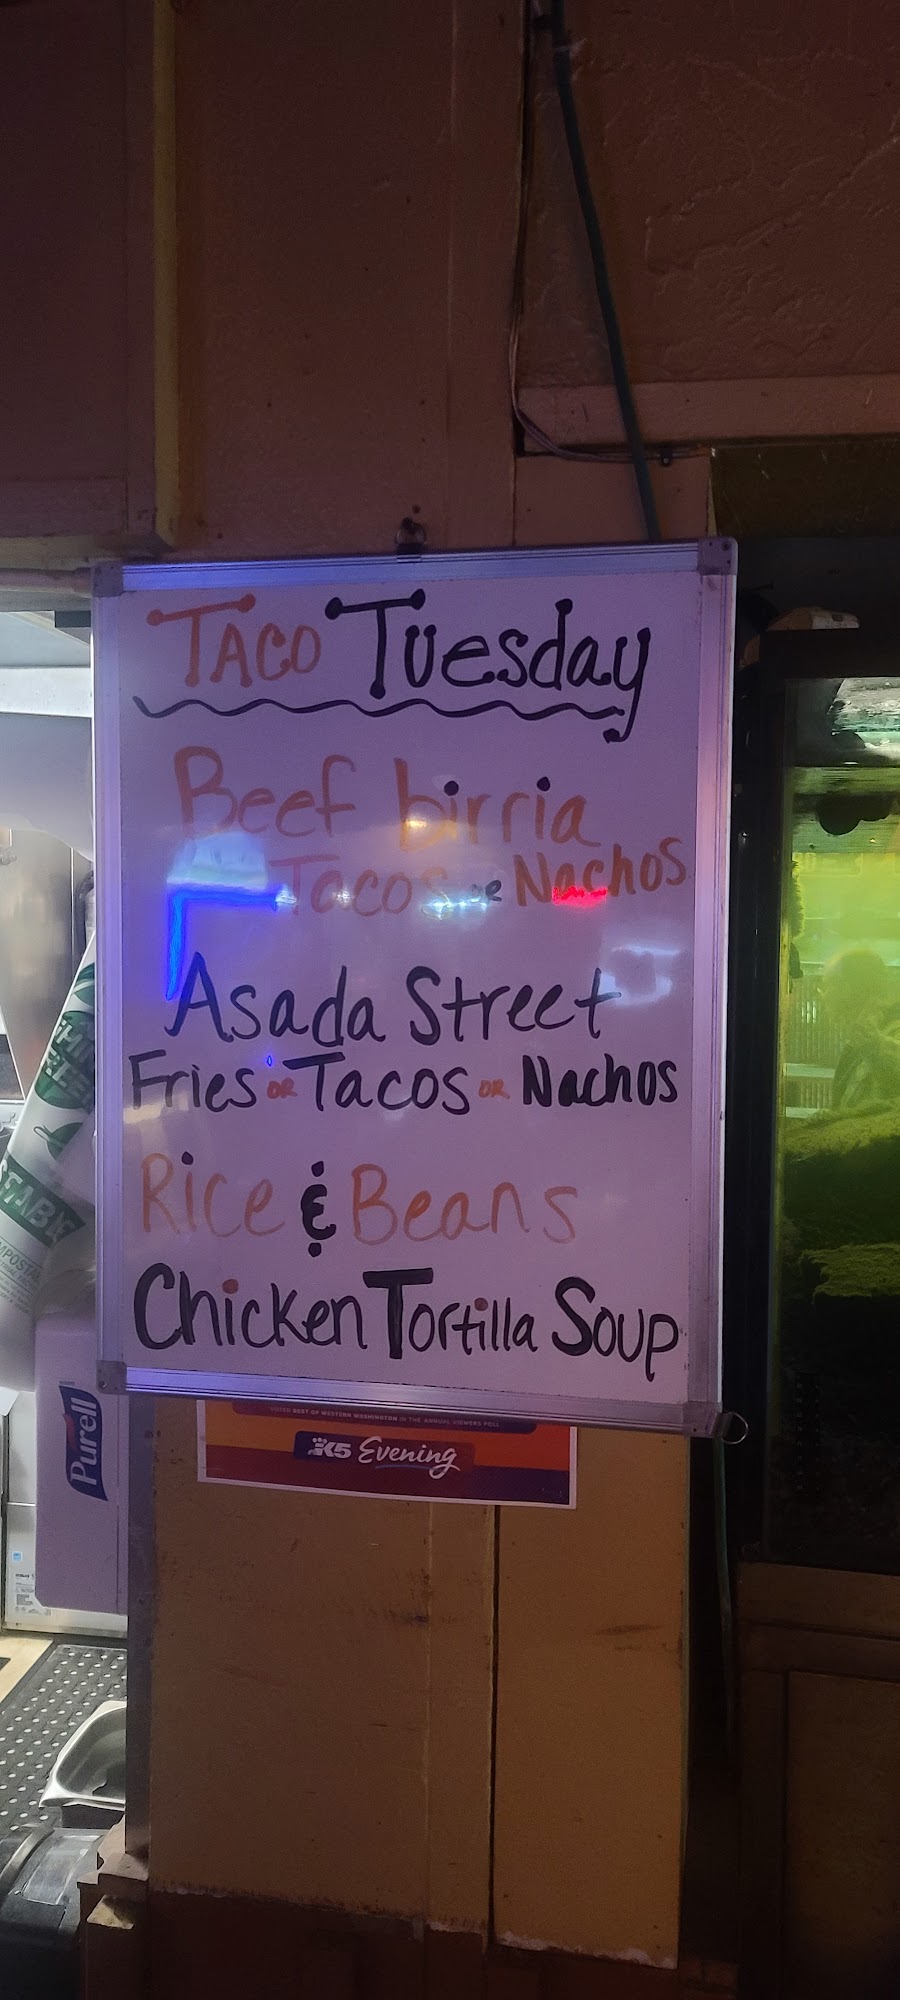 Taco Tuesday
Beef birria
Tacos or Nachos
Asada Street
Fries or Tacos or Nachos
Rice & Beans
Chicken Tortilla Soup
VOTED BEST OF WESTERN WASHINGTON IN THE ANNUAL VIEWERS POLL
K5 Evening
Purell
TABLE